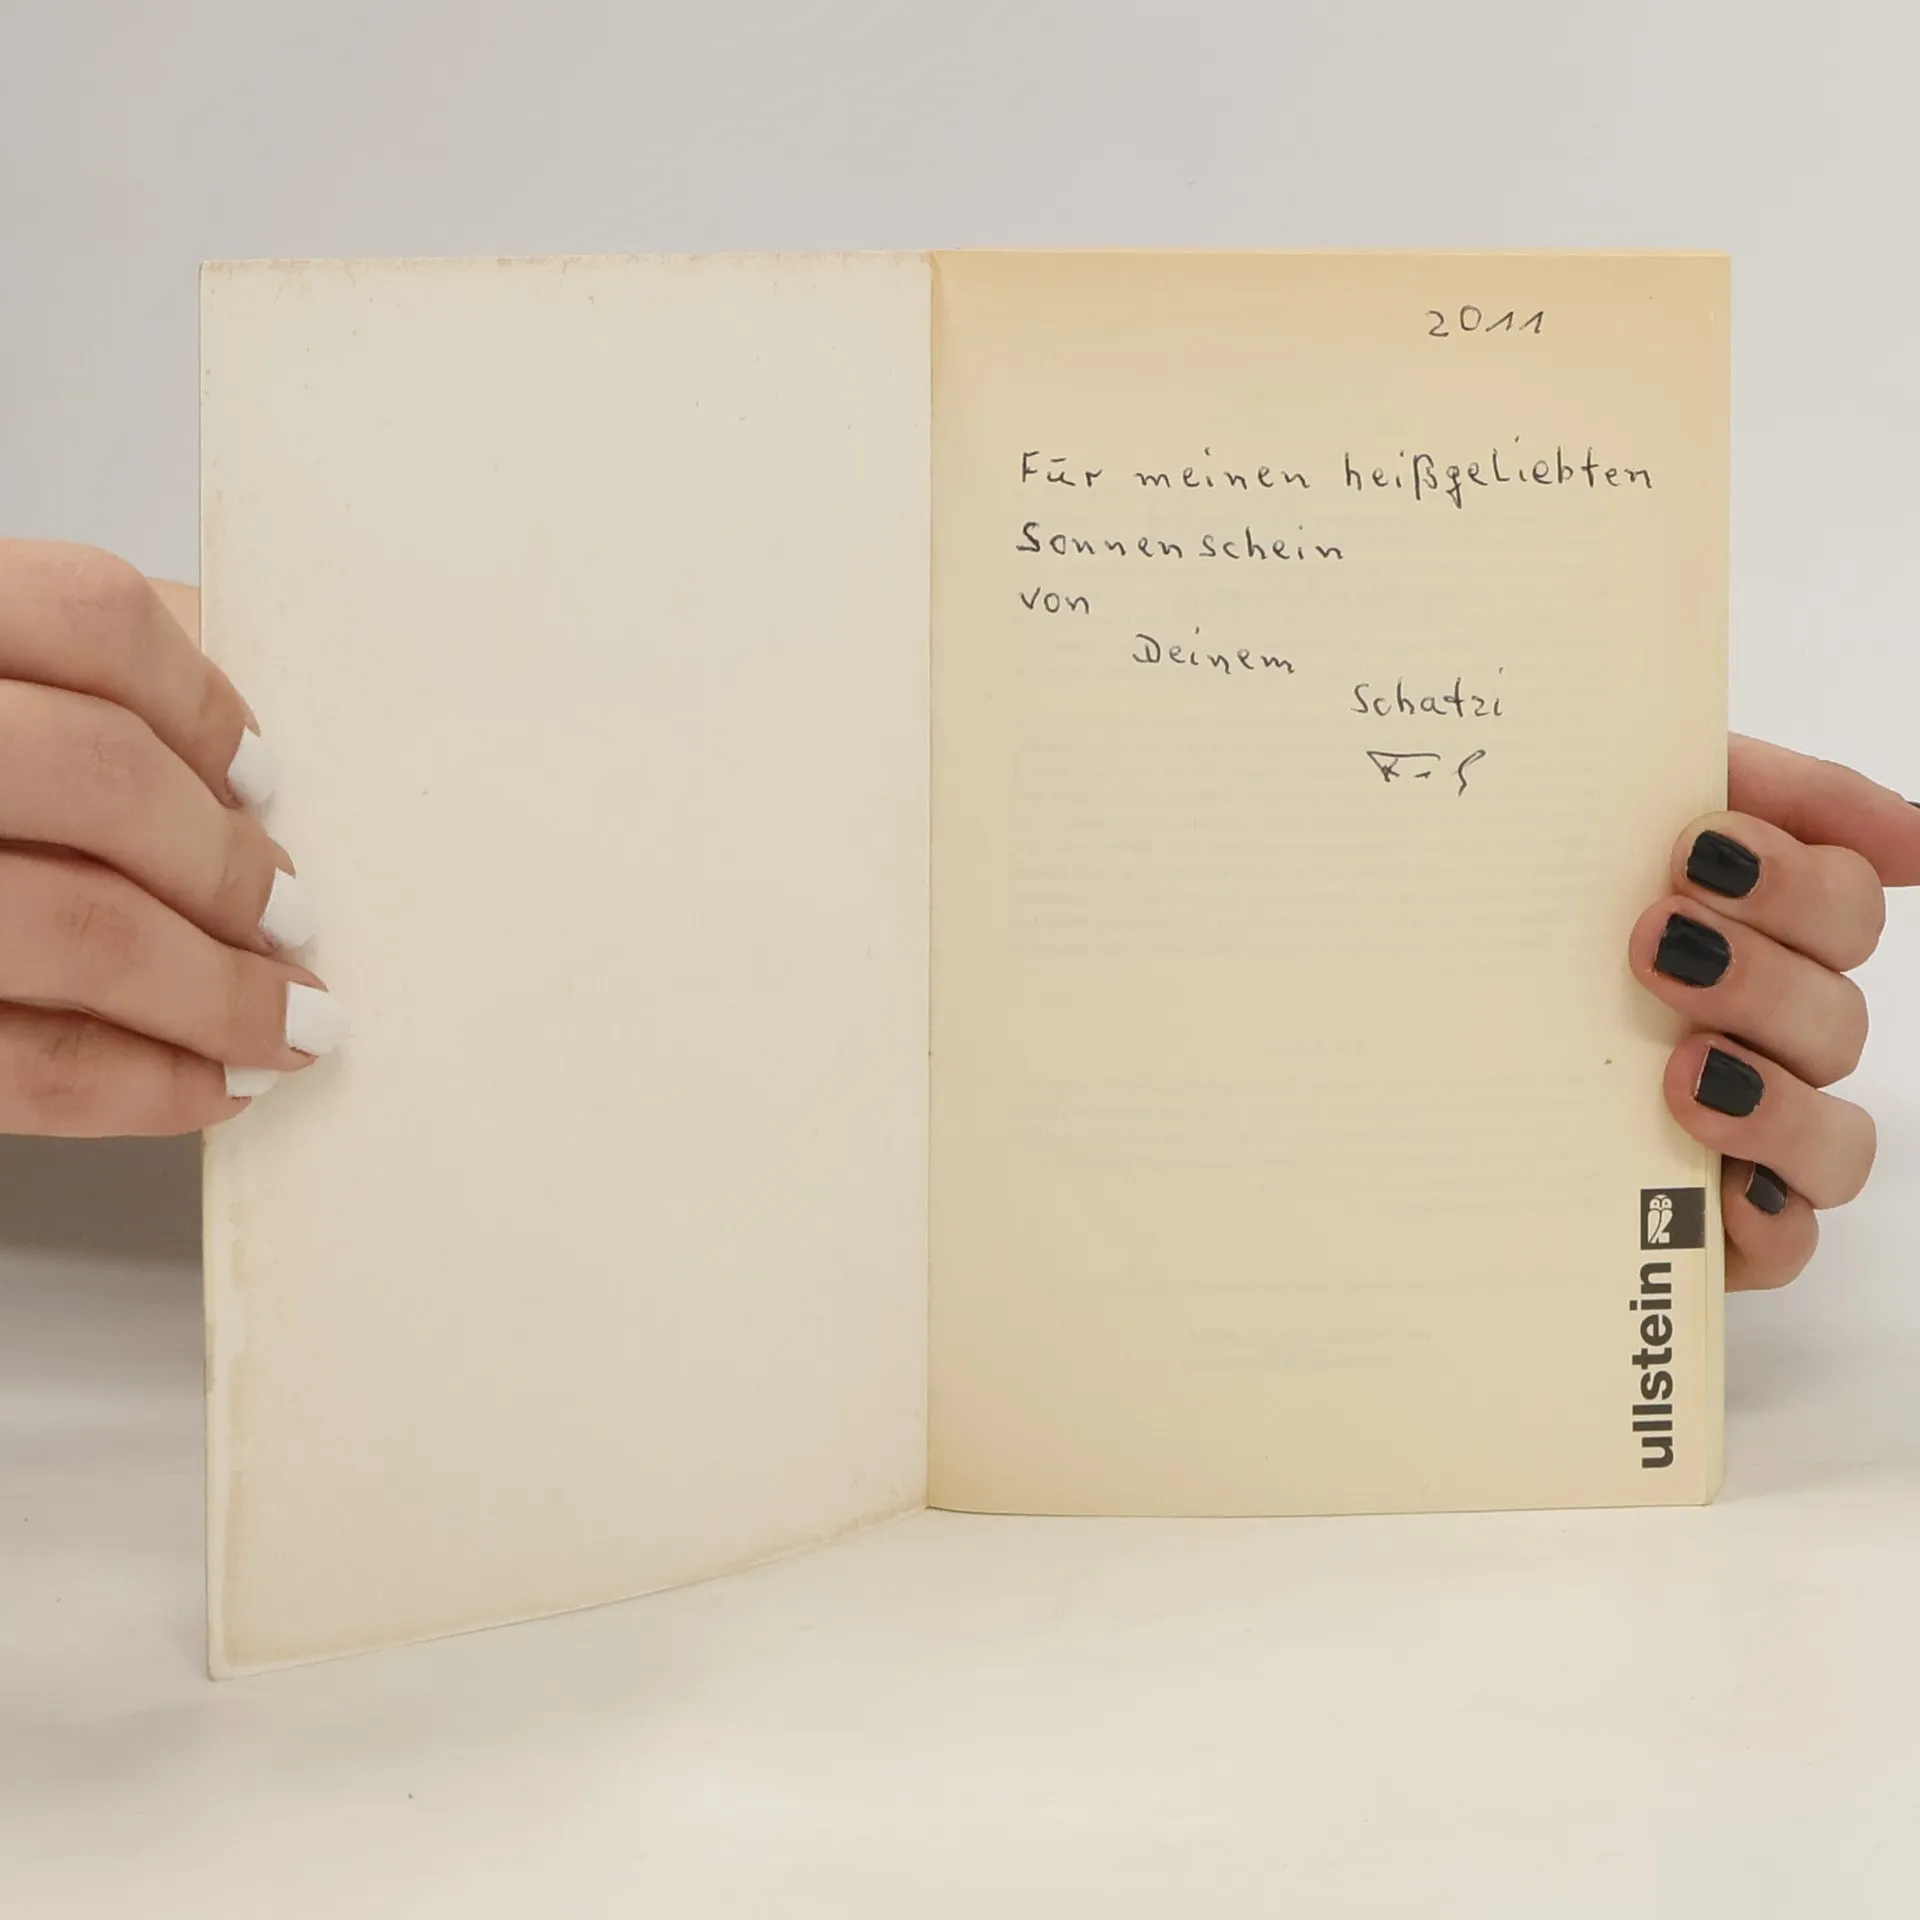 2011
Für meinen heißgeliebten
Sonnenschein
von
Deinem
Schatzi
ullstein